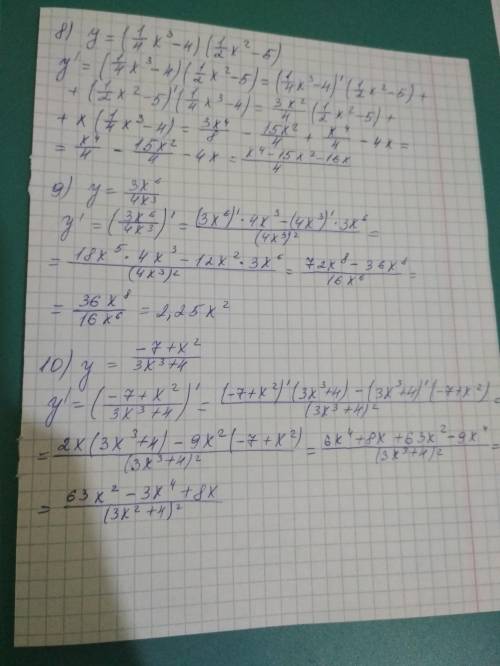 8) y = (1/4 x³ - 4) (1/2 x² - 5)
y' = (1/4 x³ - 4) (1/2 x² - 5) = (1/4 x³ - 4)' (1/2 x² - 5) +
+ (1/2 x² - 5)' (1/4 x³ - 4) = 3x²/4 (1/2 x² - 5) +
+ x (1/4 x³ - 4) = 3x⁴/8 - 15x²/4 + x⁴/4 - 4x =
= x⁴/4 - 15x²/4 - 4x = (x⁴ - 15x² - 16x)/4
9) y = 3x⁶/4x³
y' = (3x⁶/4x³)' = ((3x⁶)' · 4x³ - (4x³)' · 3x⁶)/(4x³)² =
= (18x⁵ · 4x³ - 12x² · 3x⁶)/(4x³)² = (72x⁸ - 36x⁸)/16x⁶ =
= 36x⁸/16x⁶ = 2,25x²
10) y = (-7 + x²)/(3x³ + 4)
y' = ((-7 + x²)/(3x³ + 4))' = ((-7 + x²)' (3x³ + 4) - (3x³ + 4)' (-7 + x²))/(3x³ + 4)² =
= (2x (3x³ + 4) - 9x² (-7 + x²))/(3x³ + 4)² = (6x⁴ + 8x + 63x² - 9x⁴)/(3x³ + 4)² =
= (63x² - 3x⁴ + 8x)/(3x² + 4)²